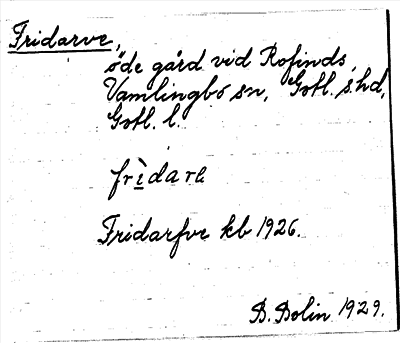 Fridarve,
öde gård vid Rofinds,
Vamlingbo sn, Gotl. s. hd,
Gotl. l.
frìdarɐ
Fridarfve kb 1926.
D. Bolin 1929.